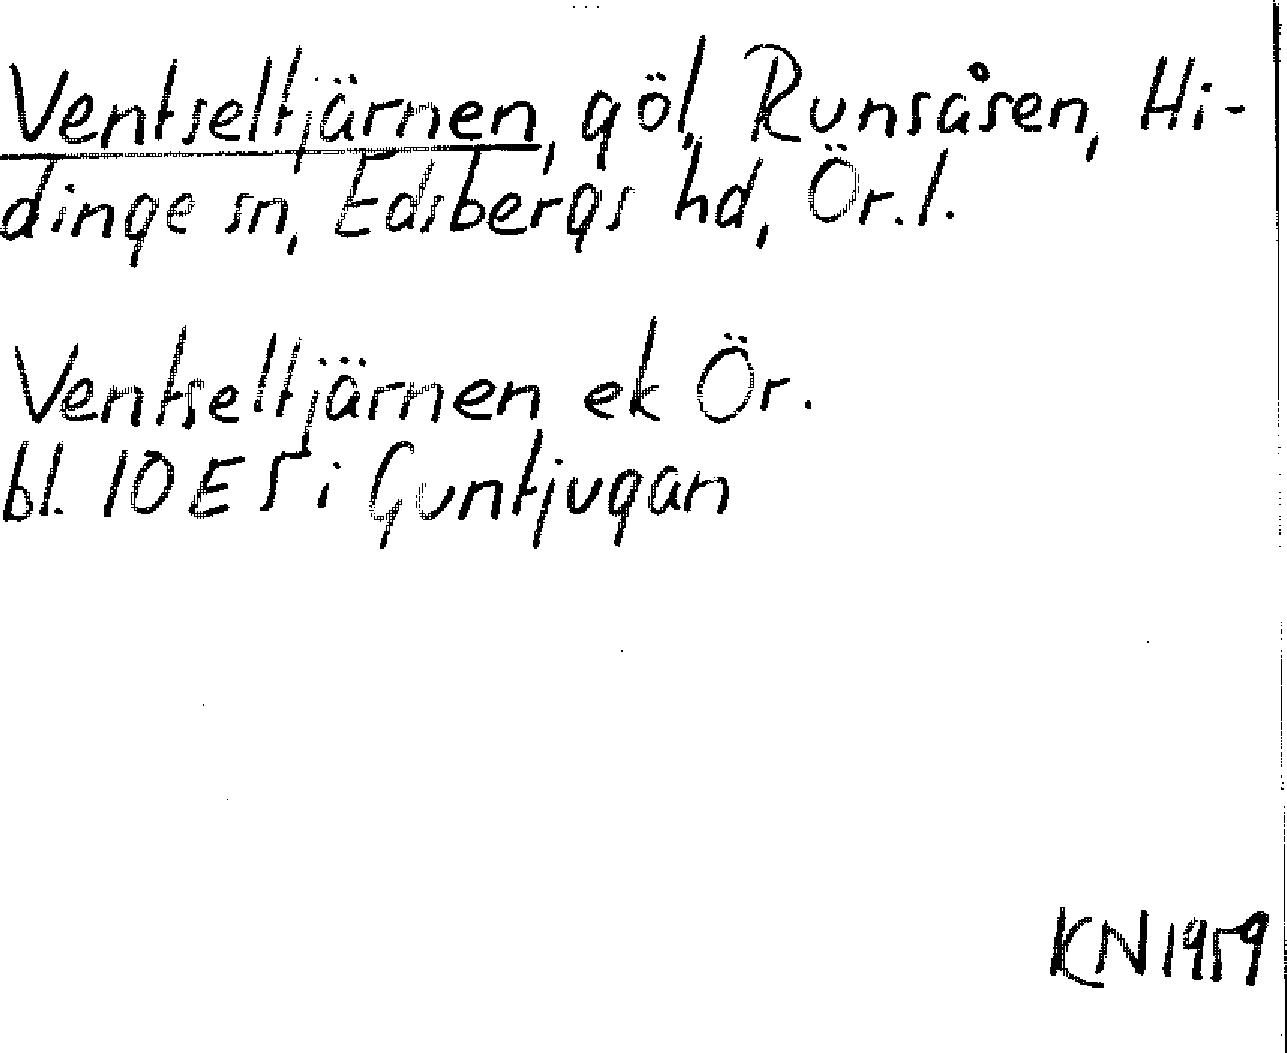 Ventseltjärnen, göl, Runsåsen, Hi-
dinge sn, Edsbergs hd, Ör. l.
Ventseltjärnen ek Ör.
bl. 10 E 5 i Guntjugan
KN 1959